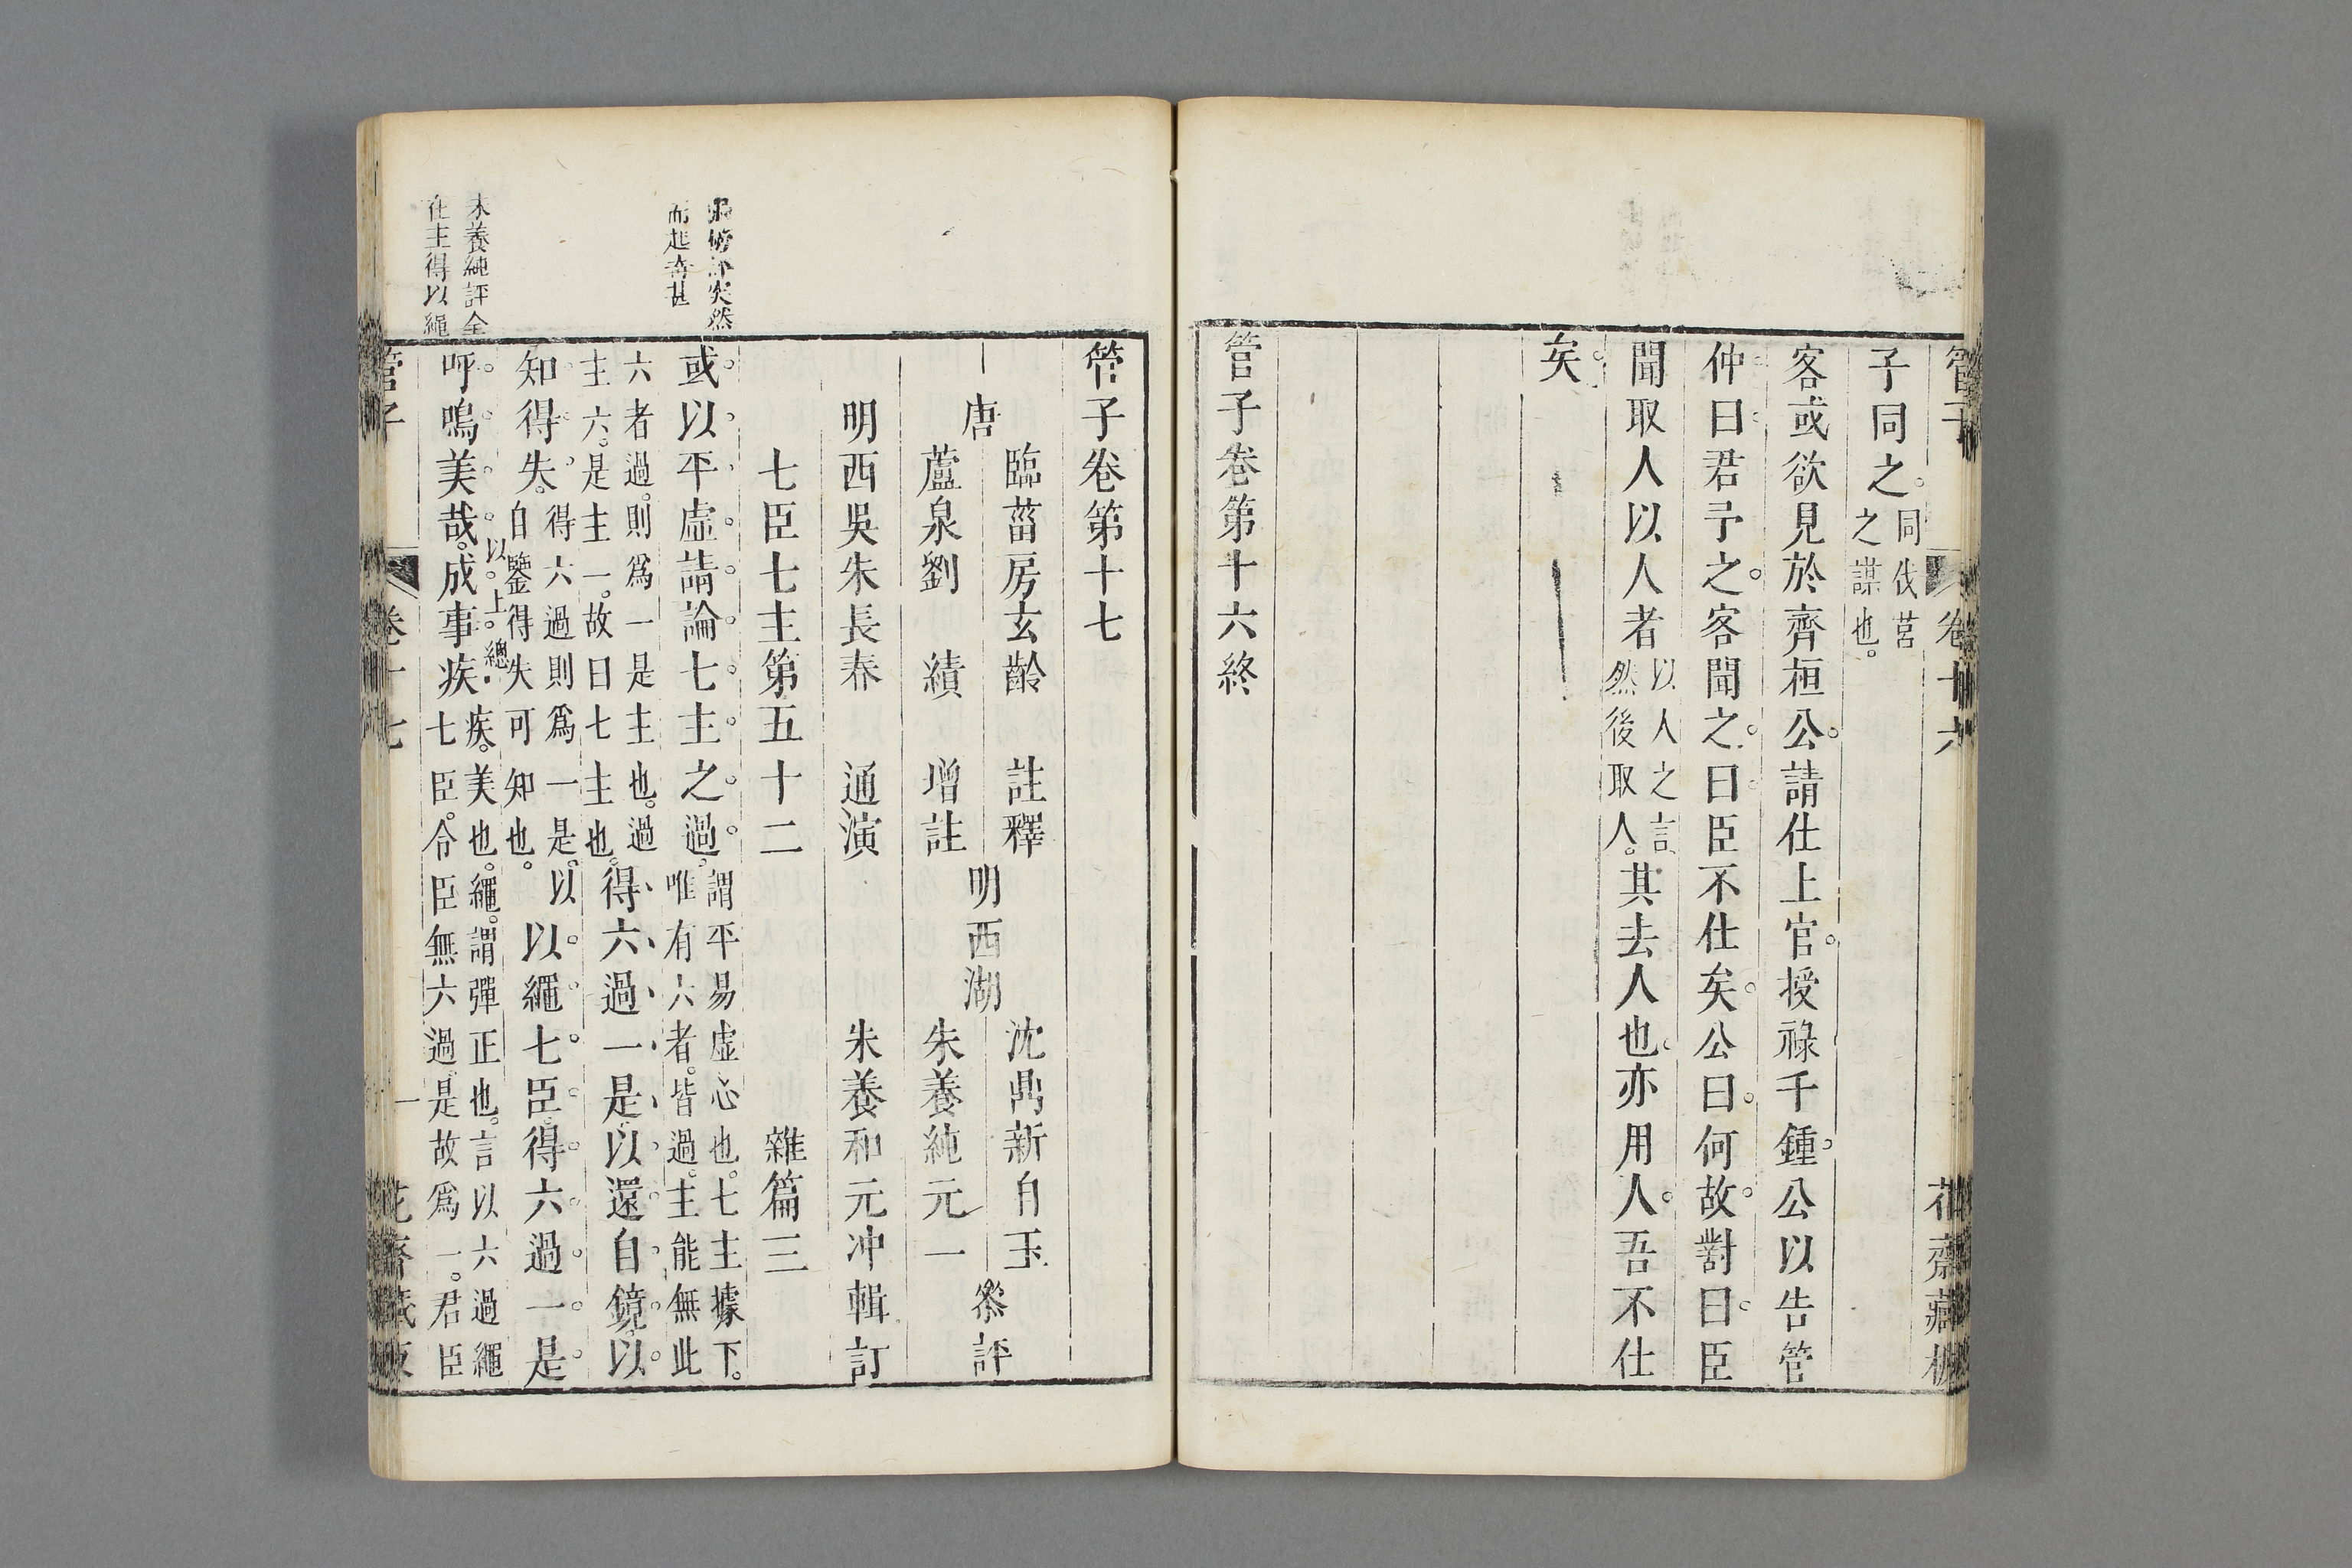 管子
卷十六
花齋藏板
子同之。同伐莒之謀也。
客或欲見於齊桓公。請仕上官。授祿千鍾。公以告管
仲曰君予之。客聞之。曰臣不仕矣。公曰。何故。對曰。臣
聞取人以人者以人之言然後取人。其去人也。亦用人。吾不仕
矣。
管子卷第十六終
管子卷第十七
唐
臨菑房玄齡 註釋
蘆泉劉績 增註
明西湖
沈鼎新自玉
朱養純元一
叅評
明西吳朱長春 通演 朱養和元冲輯訂
七臣七主第五十二 雜篇三
突然
而起奇甚
或以平虛請論七主之過。謂平易虛心也。七主據下。唯有六者。皆過。主能無此
六者過。則爲一是主也。過主六。是主一。故曰七主也。得六過一是。以還自鏡。以
知得失。得六過則爲一是。以自鑒得失可知也。以繩七臣。得六過一是。
朱養純評全
在主得以繩
呼嗚美哉。成事疾以。上。總疾。美也。繩。謂彈正也。言以六過繩七臣。令臣無六過。是故爲一。君臣
管子
卷十七
一
花齋藏板